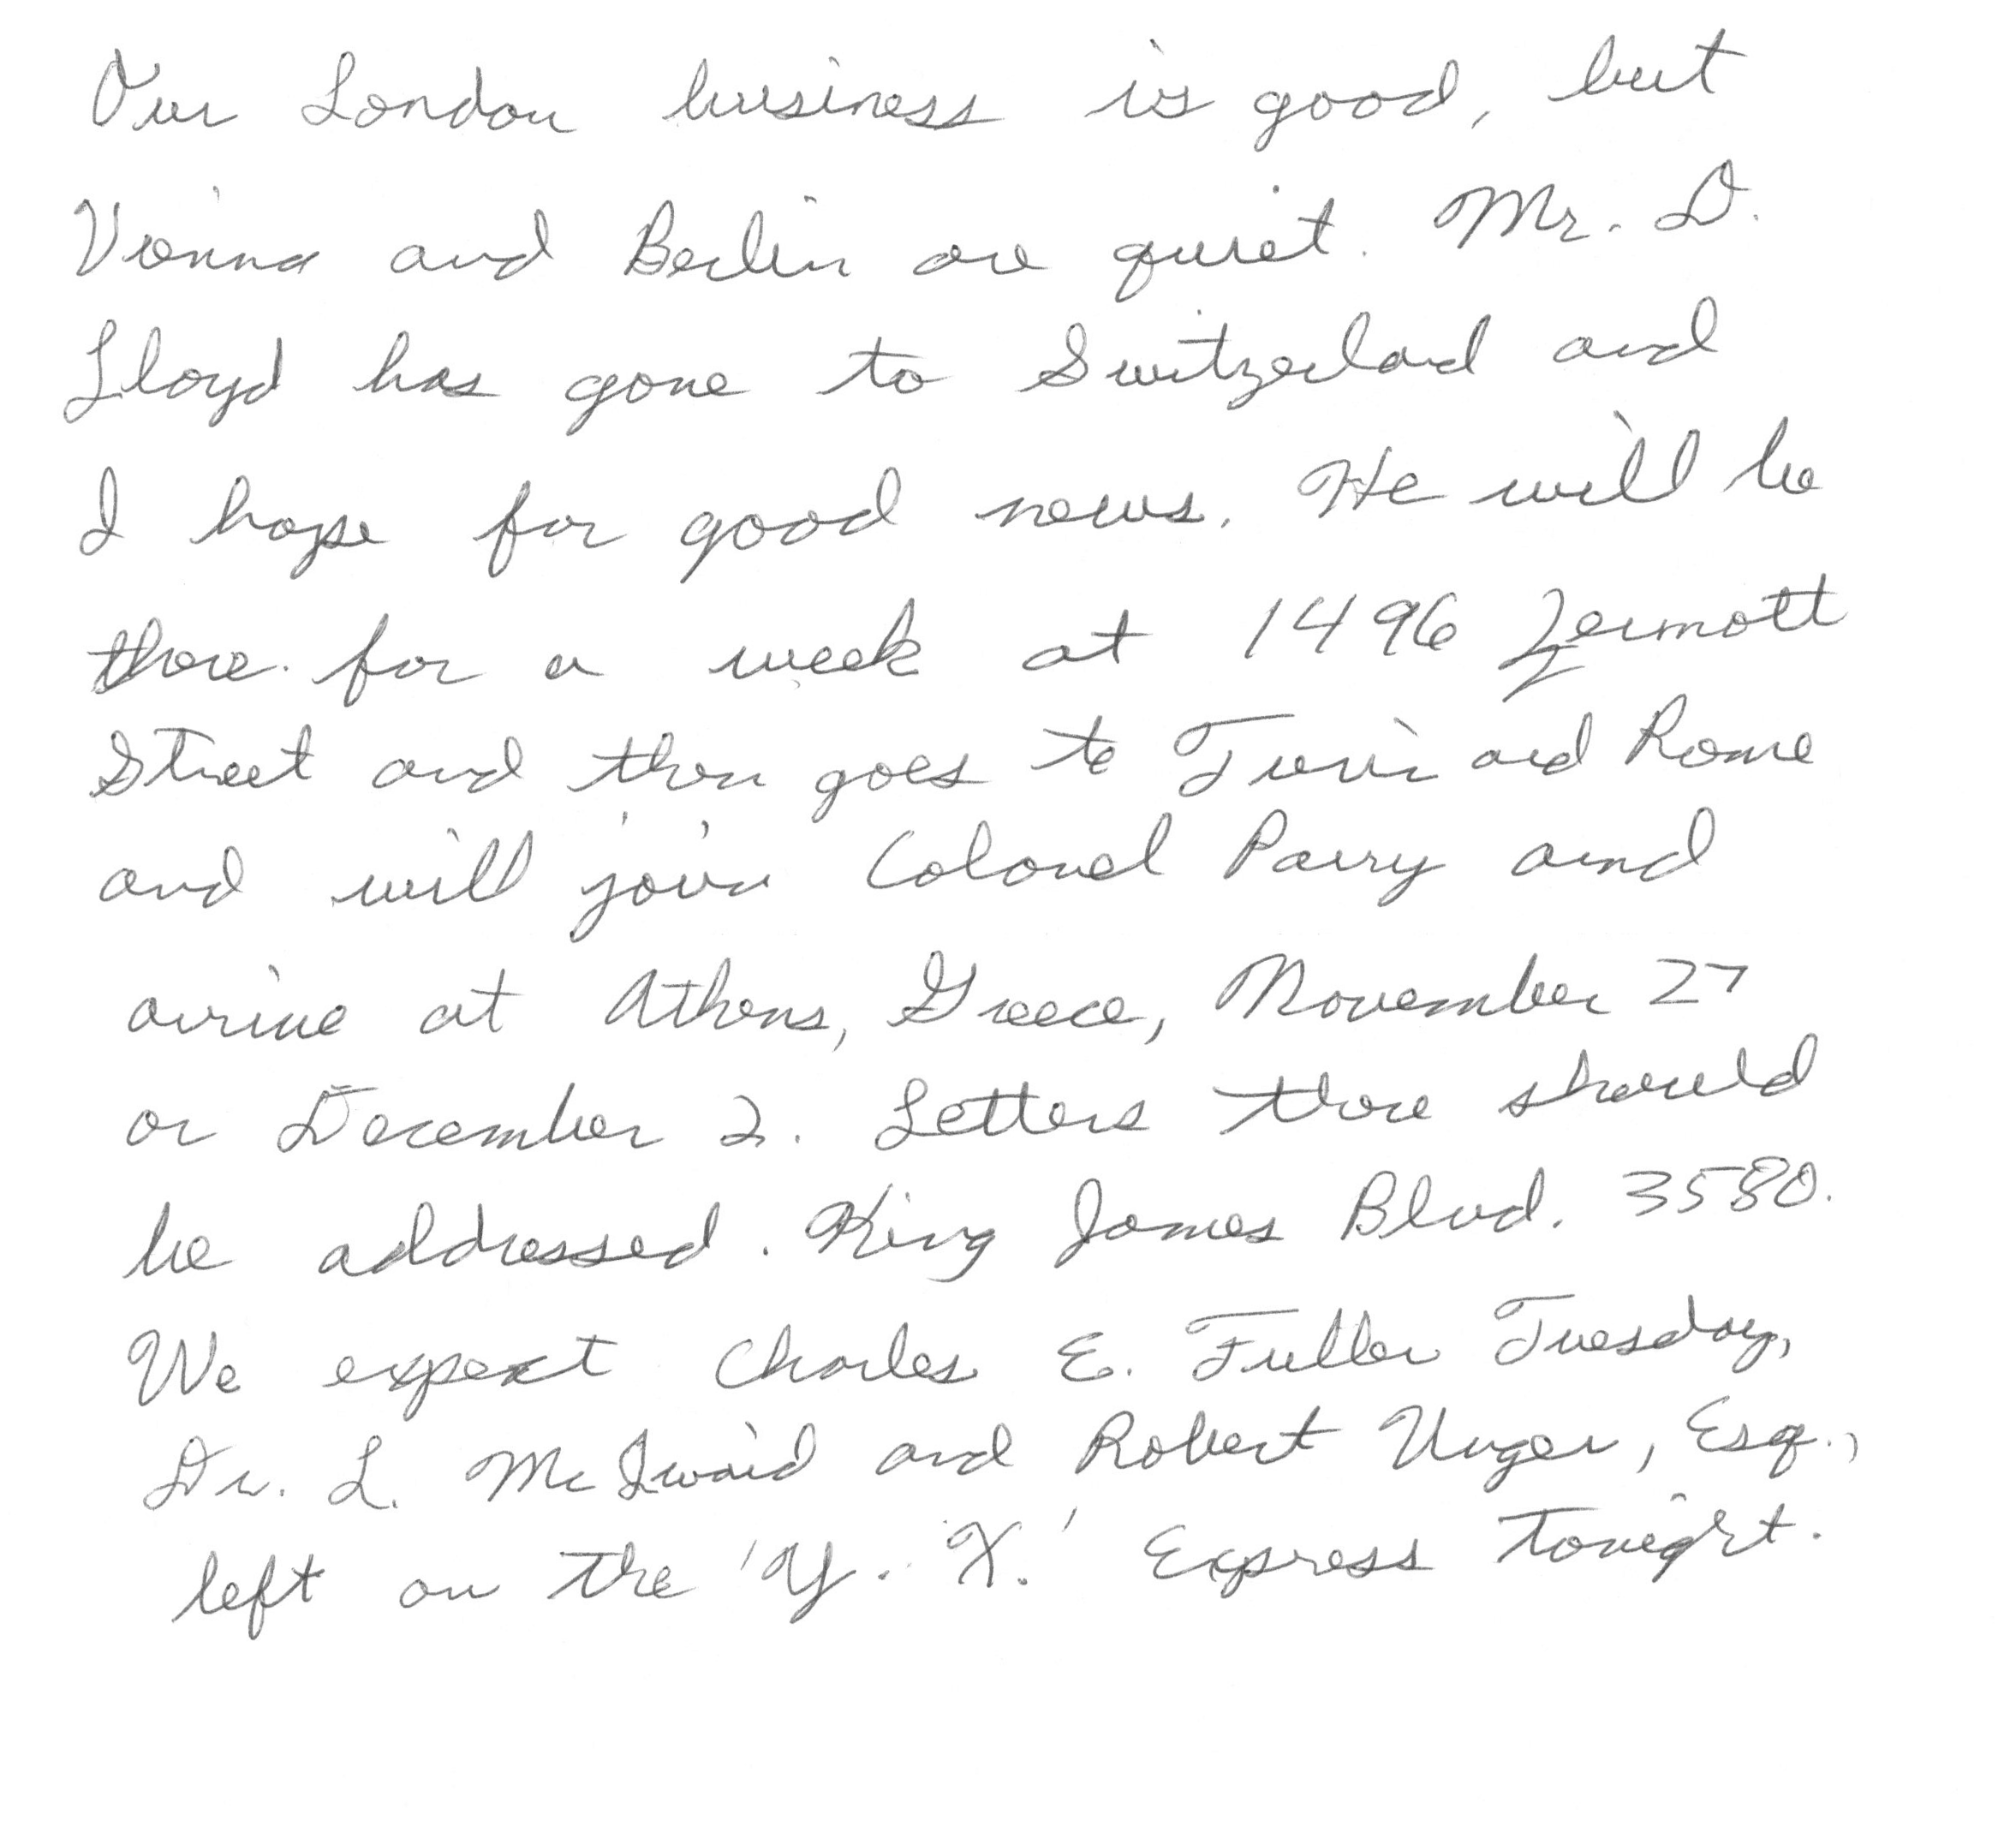 Our London business is good, but
Vienna and Berlin are quiet. Mr. D.
Lloyd has gone to Switzerland and
I hope for good news. He will be
there for a week at 1496 Zermott
Street and then goes to Turin and Rome
and will join Colonel Parry and
arrive at Athens, Greece, November 27
or December 2. Letters there should
be addressed. King James Blvd. 3580.
We expect Charles E. Fuller Tuesday,
Dr. L. Mc Quaid and Robert Unger, Esq.,
left on the 'Y. X.' Express tonight.